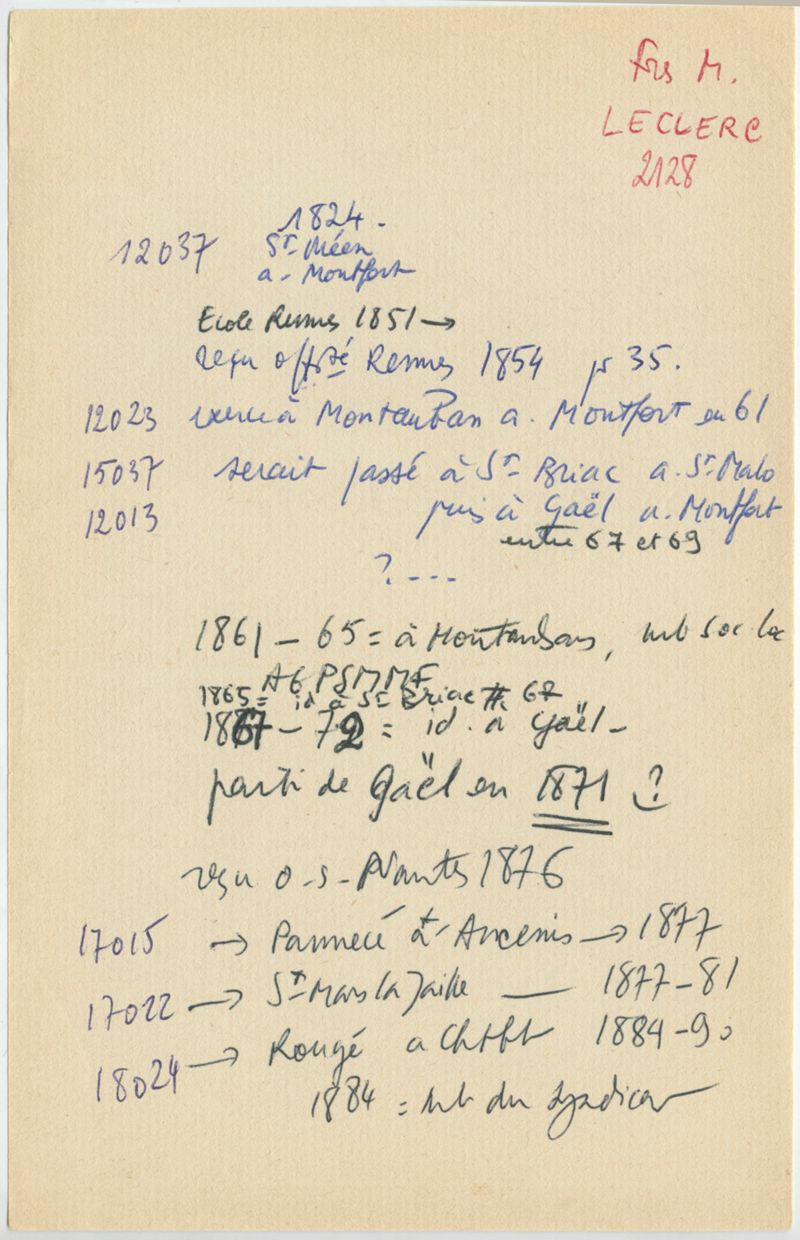 Frs M.
LECLERC
2128
1824.
12037 St-Méen
a - Montfort
Ecole Rennes 1851 →
reçu offté Rennes 1854 pr 35.
12023 exerce à Montauban a. Montfort en 61
15037 serait passé à St-Briac a. St-Malo
12013 puis à Gaël a. Montfort
entre 67 et 69
? ---
1861 – 65 = à Montauban, mb soc loc
AG PSMMF
1865 = id à St Briac # 67
1867 – 72 = id. a Gaël –
parti de Gaël en 1871 ?
reçu o-s- Nantes 1876
17015 → Pannecé at Ancenis → 1877
17022 → St-Mars la Jaille — 1877-81
18024 → Rougé a Chtbt 1884-90
1884 = mb du syndicat